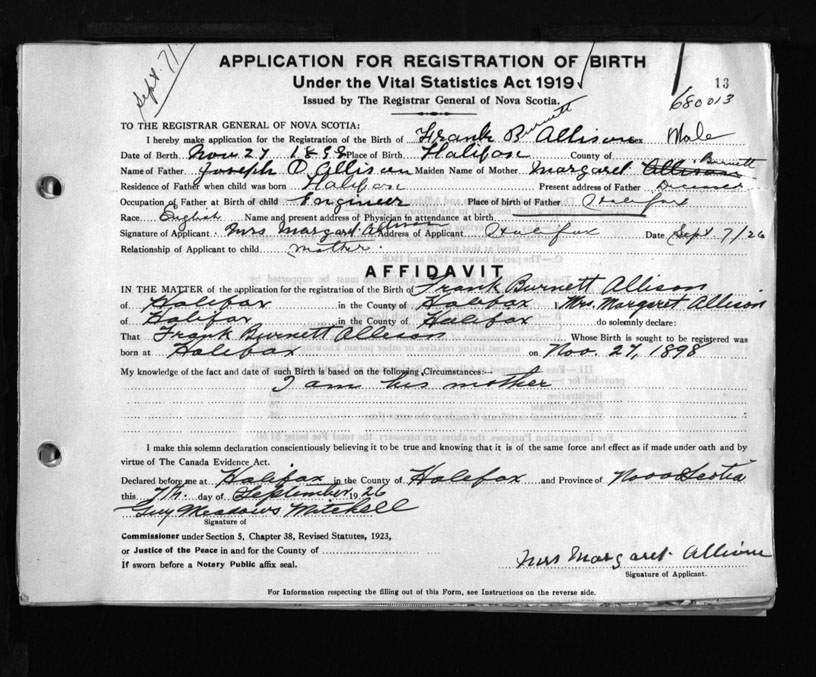 Sept. 7/
APPLICATION FOR REGISTRATION OF BIRTH
Under the Vital Statistics Act 1919
13
Issued by The Registrar General of Nova Scotia.
680013
TO THE REGISTRAR GENERAL OF NOVA SCOTIA:
Burnett
I hereby make application for the Registration of the Birth of Frank B Allison Sex Male
Date of Berth Nov. 27 1898 Place of Birth Halifax County of
Burnett
Name of Father Joseph Allison Maiden Name of Mother Margaret Allison
Residence of Father when child was born Halifax Present address of Father
Occupation of Father at Birth of child Engineer Place of birth of Father Halifax
Race English Name and present address of Physician in attendance at birth
Signature of Applicant Mrs Margaret Allison Address of Applicant Halifax Date Sept 7/26
Relationship of Applicant to child mother.
AFFIDAVIT
IN THE MATTER of the application for the registration of the Birth of Frank Burnett Allison
of Halifax in the County of Halifax I, Mrs. Margaret Allison
of Halifax in the County of Halifax do solemnly declare:
That Frank Burnett Allison Whose Birth is sought to be registered was
born at Halifax on Nov. 27, 1898
My knowledge of the fact and date of such Birth is based on the following Circumstances:—
I am his mother
I make this solemn declaration conscientiously believing it to be true and knowing that it is of the same force and effect as if made under oath and by
virtue of The Canada Evidence Act.
Declared before me at Halifax in the County of Halifax and Province of Nova Scotia
this 7th. day of September 1926
Guy Meadows Mitchell
Signature of
Commissioner under Section 5, Chapter 38, Revised Statutes, 1923,
or Justice of the Peace in and for the County of
If sworn before a Notary Public affix seal.
Mrs Margaret Allison
Signature of Applicant.
For Information respecting the filling out of this Form, see Instructions on the reverse side.